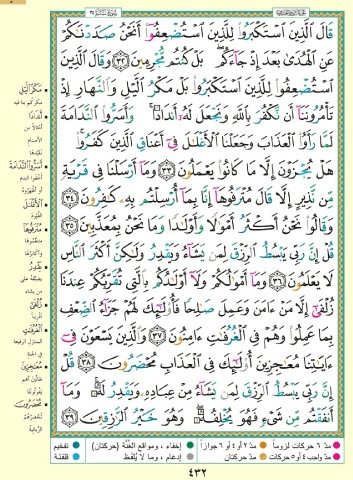 سُورَةُ سَبَإٍ ٣٤
قَالَ ٱلَّذِينَ ٱسْتَكْبَرُوا۟ لِلَّذِينَ ٱسْتُضْعِفُوٓا۟ أَنَحْنُ صَدَدْنَٰكُمْ
عَنِ ٱلْهُدَىٰ بَعْدَ إِذْ جَآءَكُم ۖ بَلْ كُنتُم مُّجْرِمِينَ ٣٢ وَقَالَ ٱلَّذِينَ
ٱسْتُضْعِفُوا۟ لِلَّذِينَ ٱسْتَكْبَرُوا۟ بَلْ مَكْرُ ٱلَّيْلِ وَٱلنَّهَارِ إِذْ
تَأْمُرُونَنَآ أَن نَّكْفُرَ بِٱللَّهِ وَنَجْعَلَ لَهُۥٓ أَندَادًا ۚ وَأَسَرُّوا۟ ٱلنَّدَامَةَ
لَمَّا رَأَوُا۟ ٱلْعَذَابَ وَجَعَلْنَا ٱلْأَغْلَٰلَ فِىٓ أَعْنَاقِ ٱلَّذِينَ كَفَرُوا۟ ۚ
هَلْ يُجْزَوْنَ إِلَّا مَا كَانُوا۟ يَعْمَلُونَ ٣٣ وَمَآ أَرْسَلْنَا فِى قَرْيَةٍ
مِّن نَّذِيرٍ إِلَّا قَالَ مُتْرَفُوهَآ إِنَّا بِمَآ أُرْسِلْتُم بِهِۦ كَٰفِرُونَ ٣٤
وَقَالُوا۟ نَحْنُ أَكْثَرُ أَمْوَٰلًا وَأَوْلَٰدًا وَمَا نَحْنُ بِمُعَذَّبِينَ ٣٥
قُلْ إِنَّ رَبِّى يَبْسُطُ ٱلرِّزْقَ لِمَن يَشَآءُ وَيَقْدِرُ وَلَٰكِنَّ أَكْثَرَ ٱلنَّاسِ
لَا يَعْلَمُونَ ٣٦ وَمَآ أَمْوَٰلُكُمْ وَلَآ أَوْلَٰدُكُم بِٱلَّتِى تُقَرِّبُكُمْ عِندَنَا
زُلْفَىٰٓ إِلَّا مَنْ ءَامَنَ وَعَمِلَ صَٰلِحًا فَأُو۟لَٰٓئِكَ لَهُمْ جَزَآءُ ٱلضِّعْفِ
بِمَا عَمِلُوا۟ وَهُمْ فِى ٱلْغُرُفَٰتِ ءَامِنُونَ ٣٧ وَٱلَّذِينَ يَسْعَوْنَ فِىٓ
ءَايَٰتِنَا مُعَٰجِزِينَ أُو۟لَٰٓئِكَ فِى ٱلْعَذَابِ مُحْضَرُونَ ٣٨ قُلْ
إِنَّ رَبِّى يَبْسُطُ ٱلرِّزْقَ لِمَن يَشَآءُ مِنْ عِبَادِهِۦ وَيَقْدِرُ لَهُۥ ۚ وَمَآ
أَنفَقْتُم مِّن شَىْءٍ فَهُوَ يُخْلِفُهُۥ ۖ وَهُوَ خَيْرُ ٱلرَّٰزِقِينَ ٣٩
مَكْرُ ٱلَّيْلِ
أَندَادًا
أَسَرُّوا۟ ٱلنَّدَامَةَ
ٱلْأَغْلَٰلَ
مُتْرَفُوهَآ
يَقْدِرُ
زُلْفَىٰٓ
ٱلْغُرُفَٰتِ
مُعَٰجِزِينَ
مُحْضَرُونَ
مدّ ٦ حركات لزوماً
مدّ ٢ أو ٤ أو ٦ جوازاً
إخفاء، ومواقع الغُنَّة (حركتان)
تفخيم
مدّ واجب ٤ أو ٥ حركات
مدّ حركتان
إدغام، وما لا يُلفَظ
قلقلة
٤٣٢